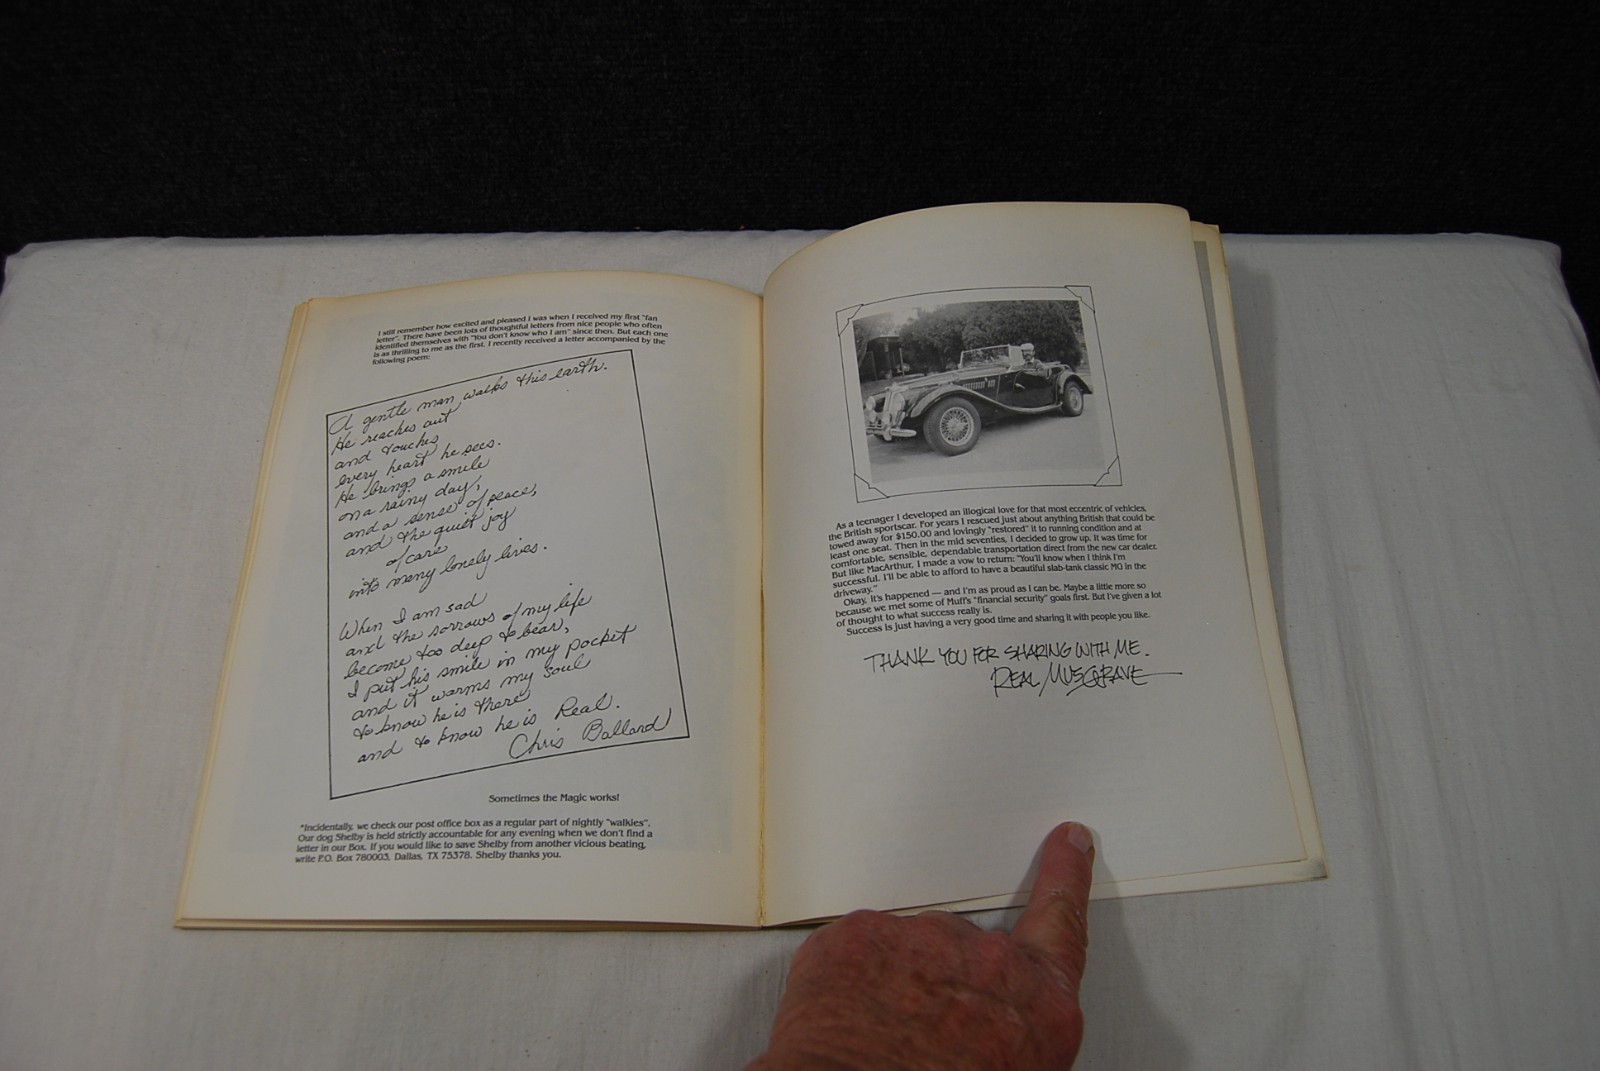 I still remember how excited and pleased I was when I received my first "fan
letter". There have been lots of thoughtful letters from nice people who often
identified themselves with "You don't know who I am" since then. But each one
is as thrilling to me as the first. I recently received a letter accompanied by the
following poem:
A gentle man walks this earth.
He reaches out
and touches
every heart he sees.
He brings a smile
on a rainy day,
and a sense of peace,
and the quiet joy
of care
into many lonely lives.
When I am sad
and the sorrows of my life
become too deep to bear,
I put his smile in my pocket
and it warms my soul
to know he is there
and to know he is Real.
Chris Ballard
Sometimes the Magic works!
*Incidentally, we check our post office box as a regular part of nightly "walkies".
Our dog Shelby is held strictly accountable for any evening when we don't find a
letter in our Box. If you would like to save Shelby from another vicious beating,
write P.O. Box 780003, Dallas, TX 75378. Shelby thanks you.
As a teenager I developed an illogical love for that most eccentric of vehicles,
the British sportscar. For years I rescued just about anything British that could be
towed away for $150.00 and lovingly "restored" it to running condition and at
least one seat. Then in the mid seventies, I decided to grow up. It was time for
comfortable, sensible, dependable transportation direct from the new car dealer.
But like MacArthur, I made a vow to return: "You'll know when I think I'm
successful. I'll be able to afford to have a beautiful slab-tank classic MG in the
driveway."
Okay, it's happened — and I'm as proud as I can be. Maybe a little more so
because we met some of Muff's "financial security" goals first. But I've given a lot
of thought to what success really is.
Success is just having a very good time and sharing it with people you like.
THANK YOU FOR SHARING WITH ME.
REAL MUSGRAVE